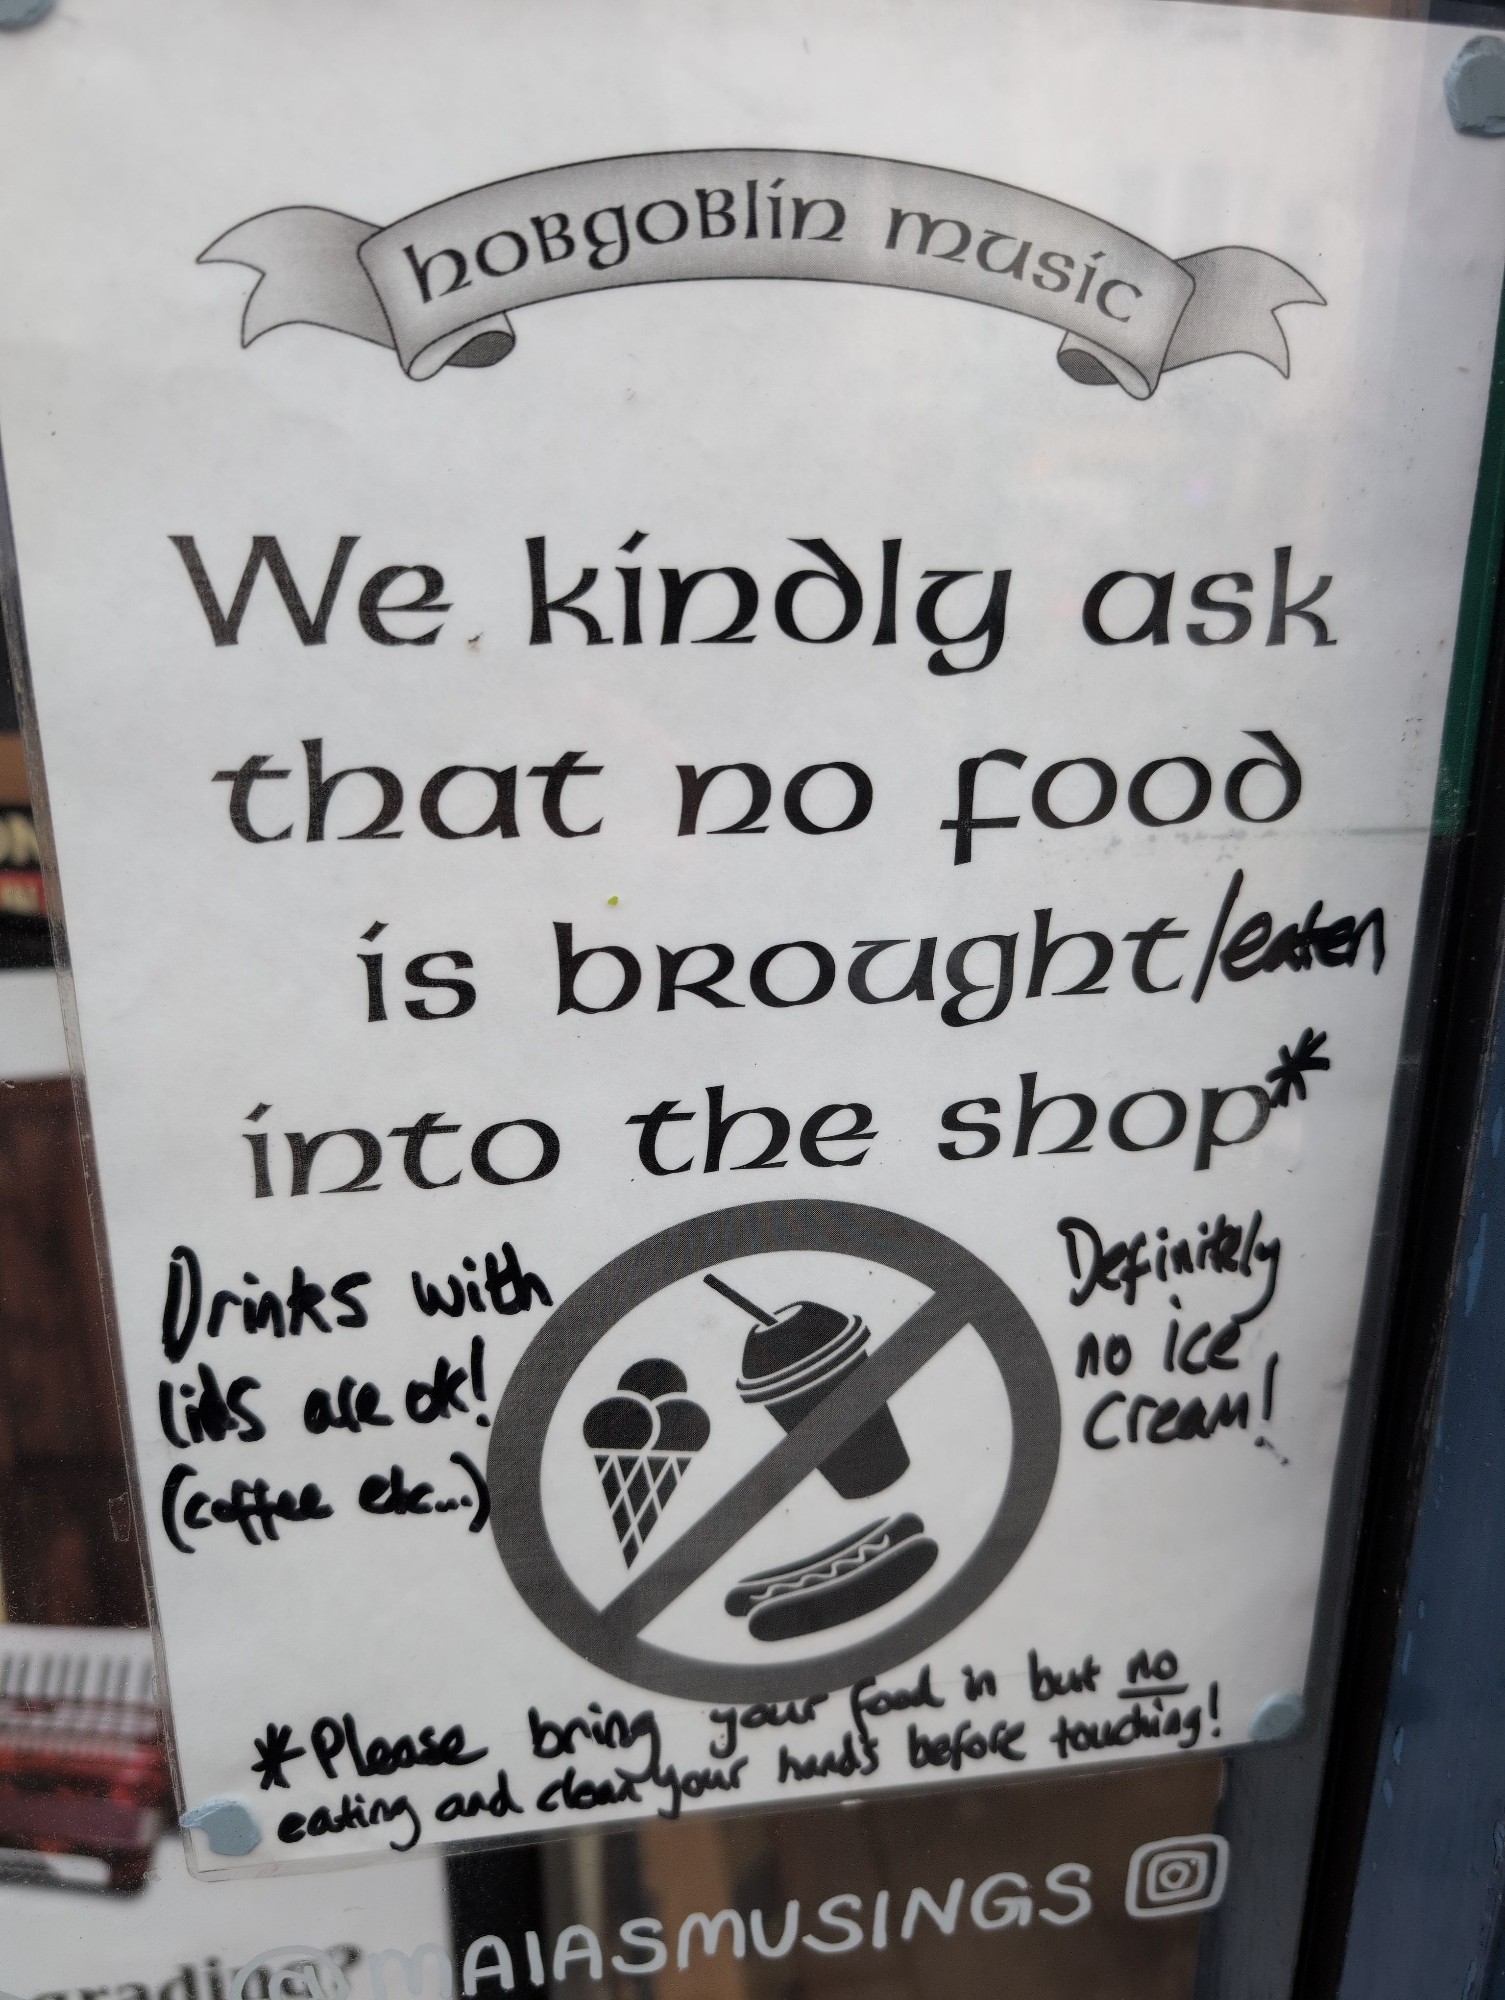 hobgoblin music
We kindly ask
that no food
is brought/eaten
into the shop*
Drinks with
lids are ok!
(coffee etc...)
Definitely
no ice
cream!
*Please bring your food in but no
eating and clean your hands before touching!
@MAIASMUSINGS
grading?